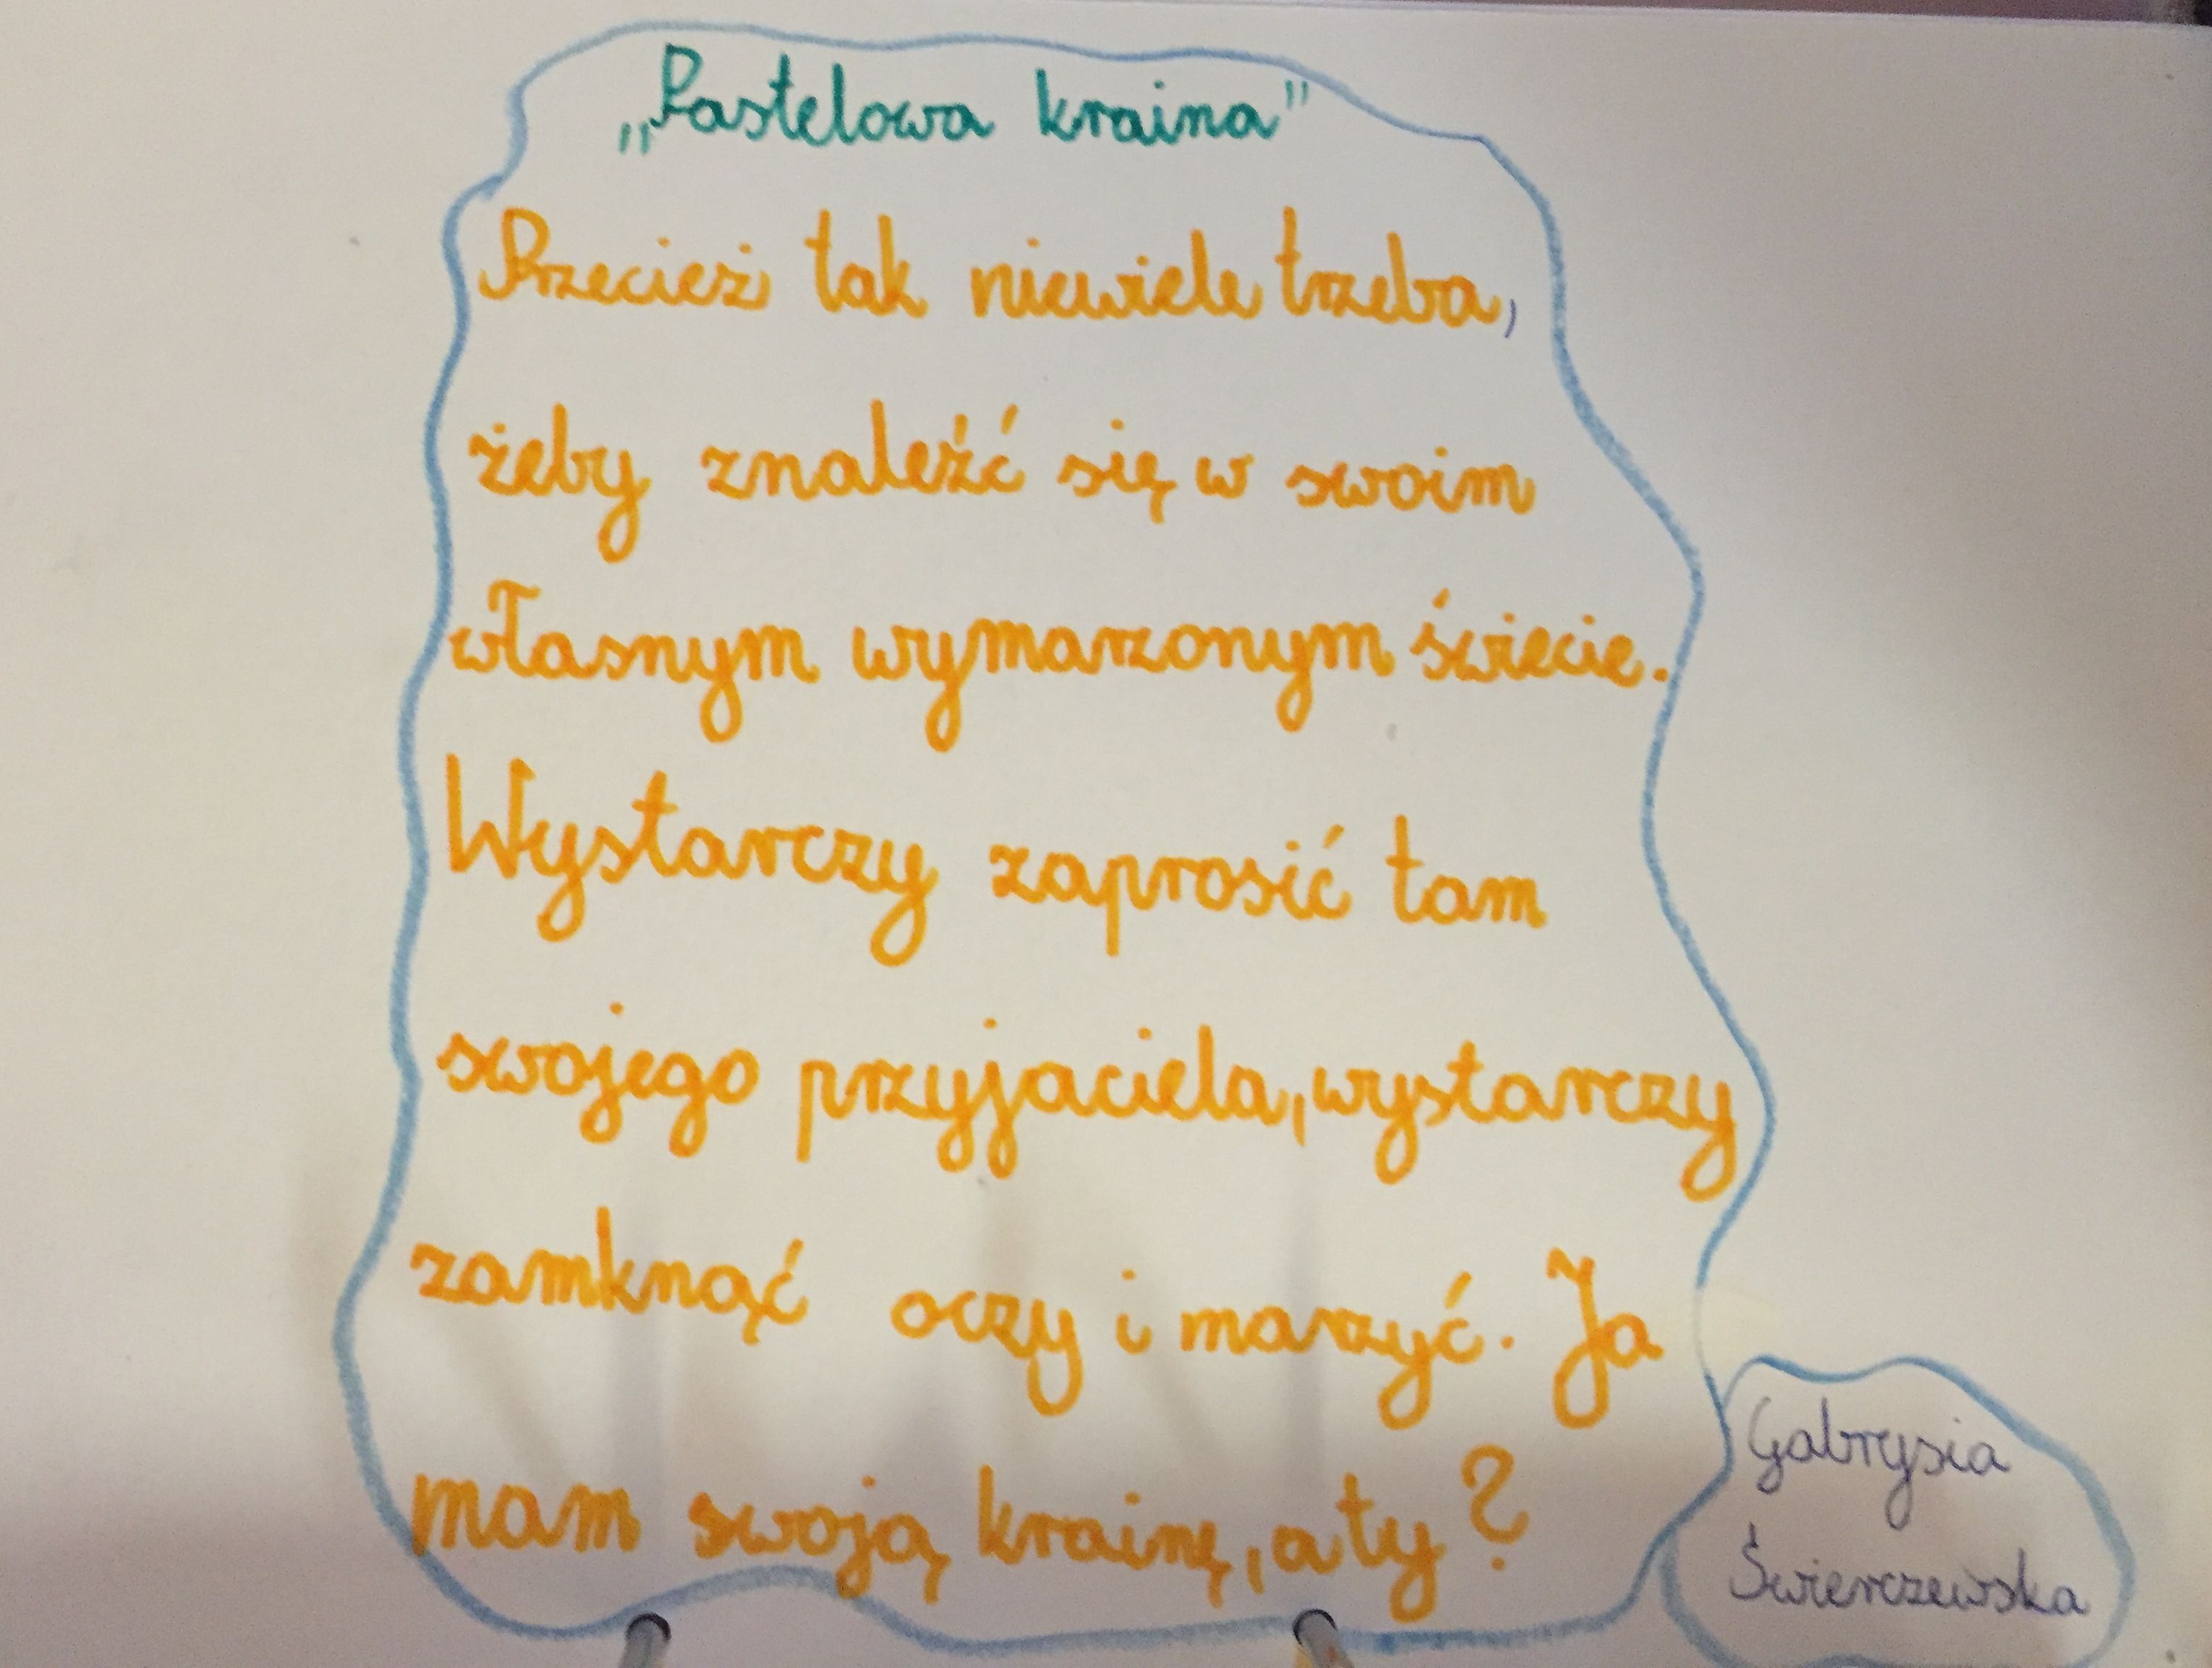 „Pastelowa kraina"
Przecież tak niewiele trzeba,
żeby znaleźć się w swoim
własnym wymarzonym świecie.
Wystarczy zaprosić tam
swojego przyjaciela, wystarczy
zamknąć oczy i marzyć. Ja
mam swoją krainę, a ty?
Gabrysia
Świerczewska